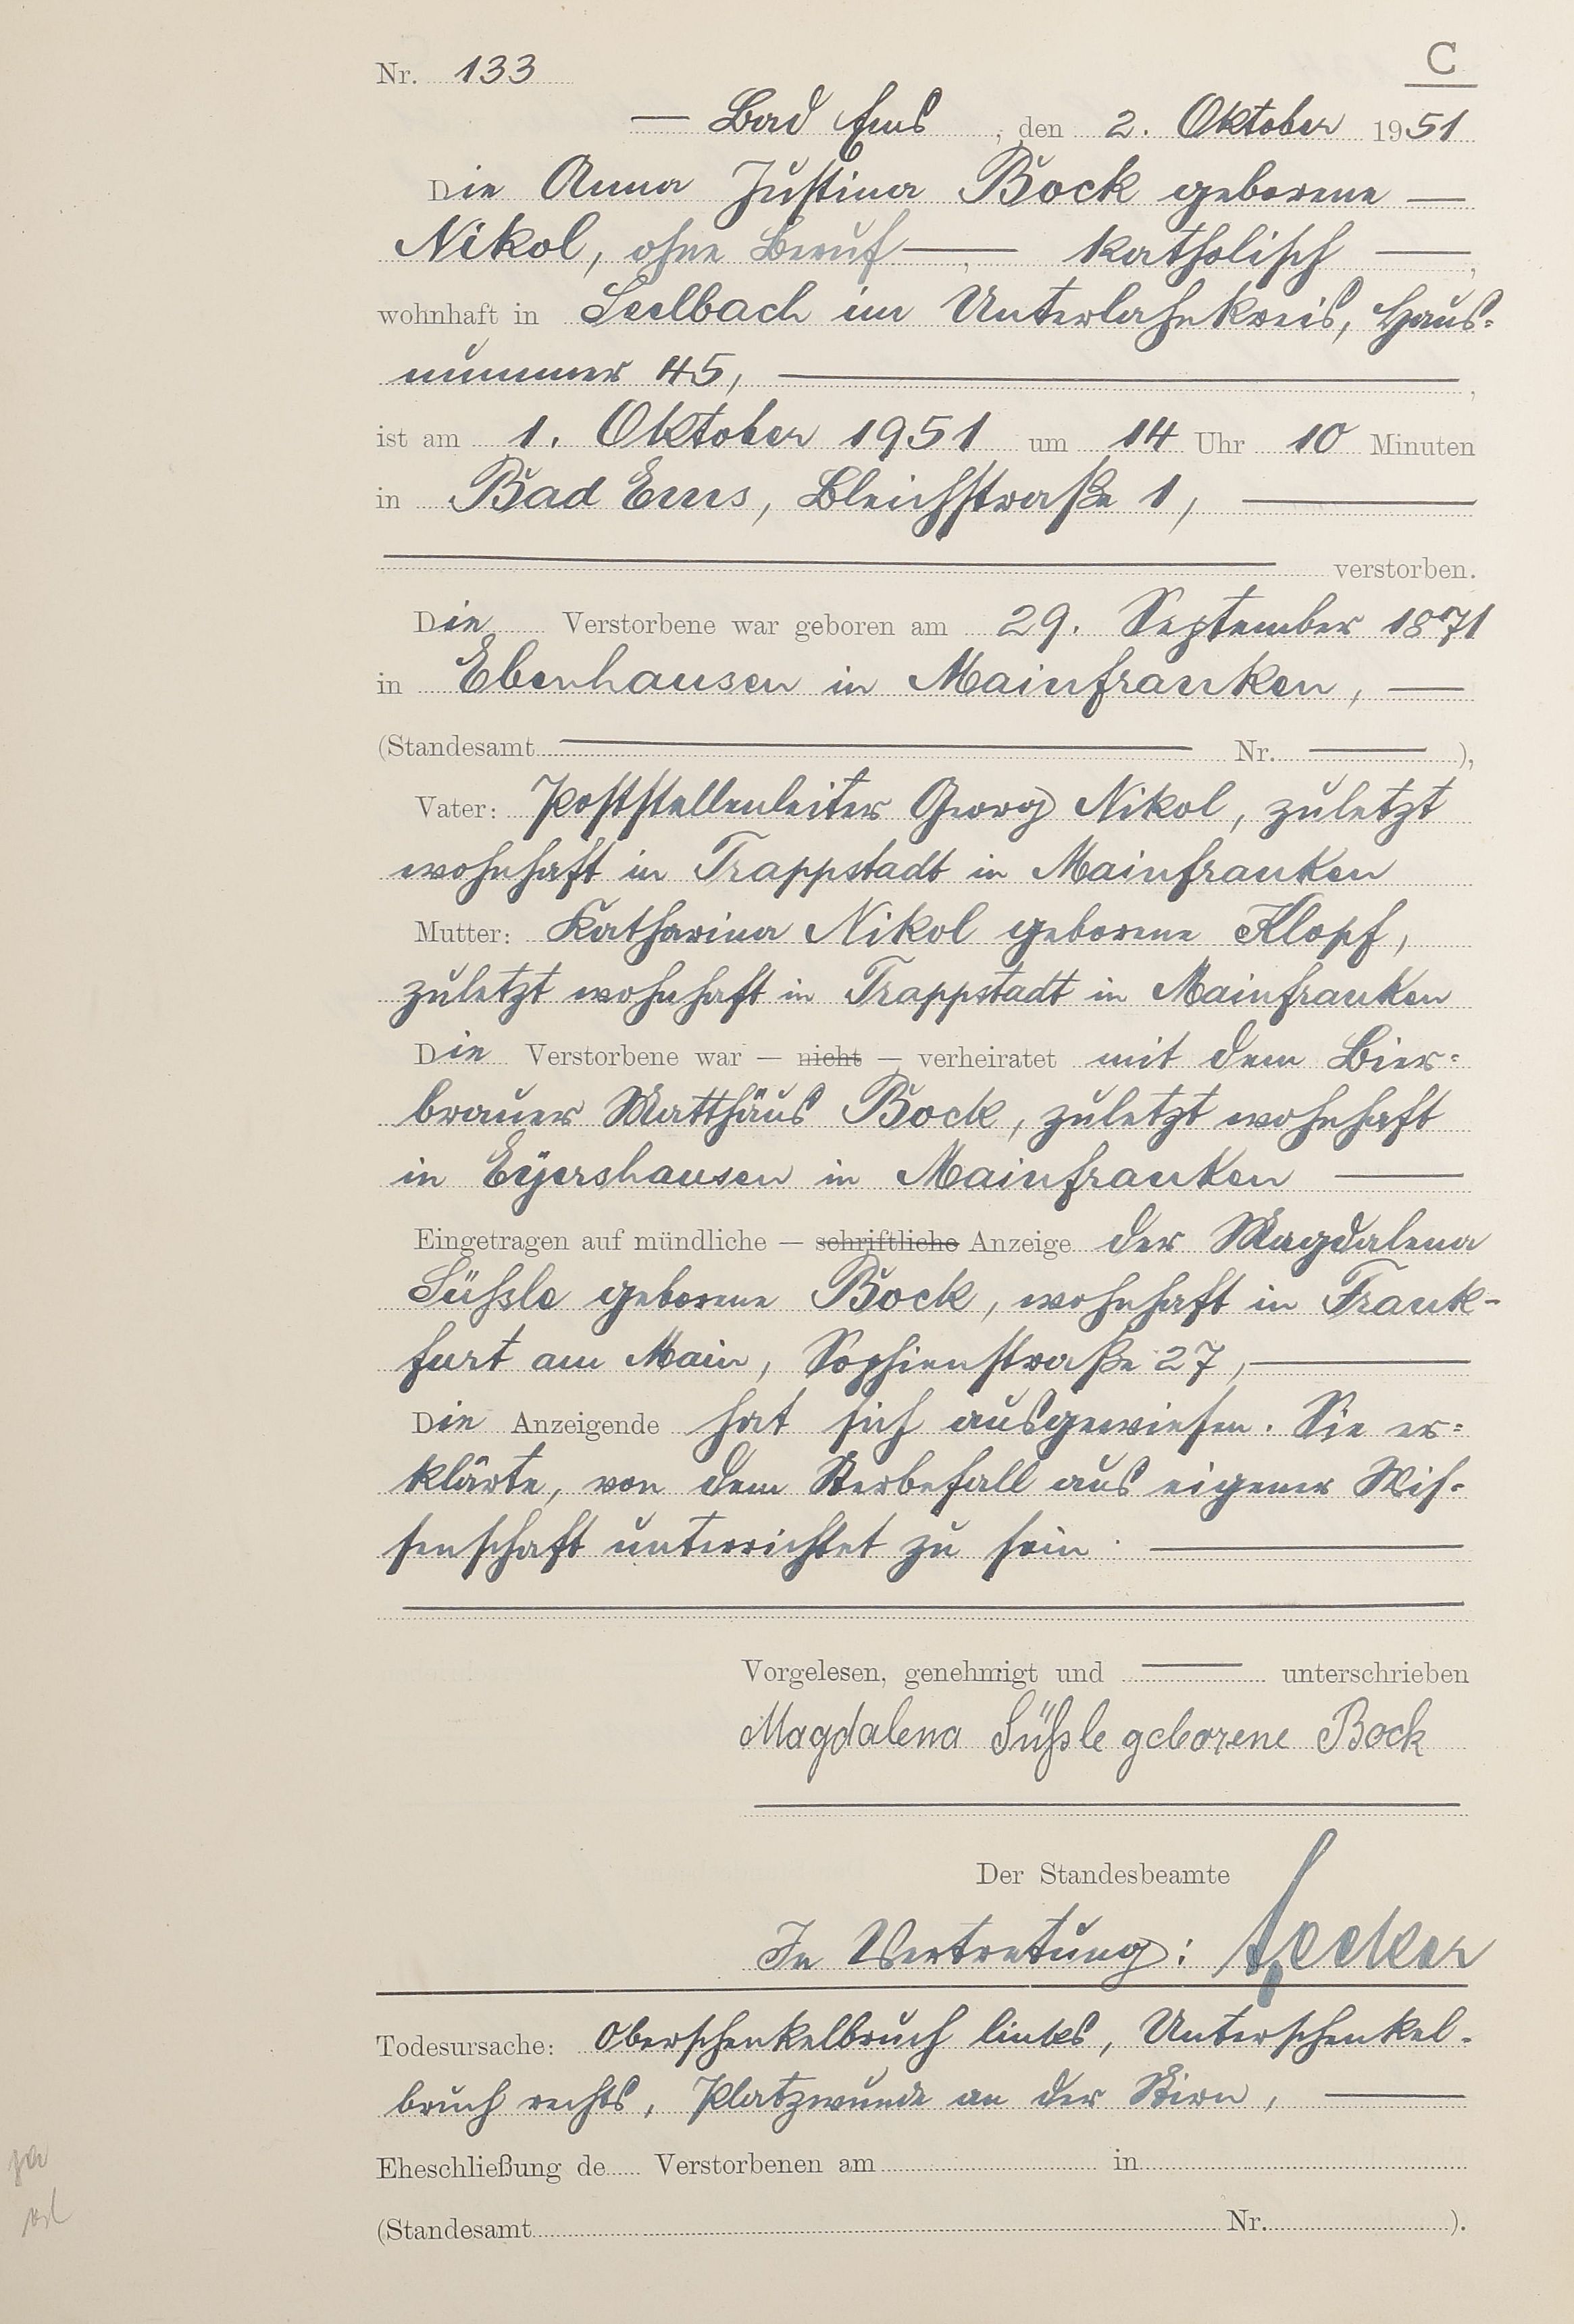 Nr. 133
C
— Bad Ems, den 2. Oktober 1951
Die Anna Justina Bock geborene —
Nikol, ohne Beruf —, — katholisch —,
wohnhaft in Seelbach im Unterlahnkreis, Haus=
nummer 45, —,
ist am 1. Oktober 1951 um 14 Uhr 10 Minuten
in Bad Ems, Bleichstraße 1, —
— verstorben.
Die Verstorbene war geboren am 29. September 1871
in Ebenhausen in Mainfranken, —
(Standesamt — Nr. —),
Vater: Poststellenleiter Georg Nikol, zuletzt
wohnhaft in Trappstadt in Mainfranken
Mutter: Katharina Nikol geborene Klopf,
zuletzt wohnhaft in Trappstadt in Mainfranken
Die Verstorbene war — nicht — verheiratet mit dem Bier=
brauer Matthäus Bock, zuletzt wohnhaft
in Eyershausen in Mainfranken —
Eingetragen auf mündliche — schriftliche Anzeige der Magdalena
Süßle geborene Bock, wohnhaft in Frank-
furt am Main, Sophienstraße 27, —
Die Anzeigende hat sich ausgewiesen. Sie er=
klärte, von dem Sterbefall aus eigener Wis-
senschaft unterrichtet zu sein. —
Vorgelesen, genehmigt und — unterschrieben
Magdalena Süßle geborene Bock
Der Standesbeamte
In Vertretung:
Todesursache: Oberschenkelbruch links, Unterschenkel-
bruch rechts, Platzwunde an der Stirn, —
Eheschließung de Verstorbenen am in
(Standesamt Nr. ).